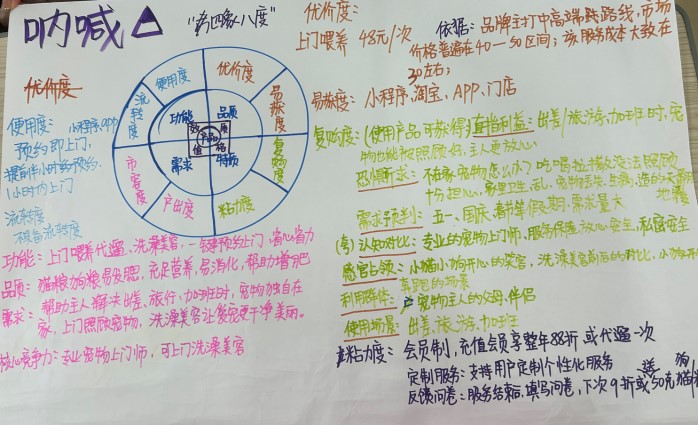 呐喊
"考四象八度"
优价度：
上门喂养 48元/次
依据：品牌主打中高端路线，市场
价格普遍在40—50区间；该服务成本大致在
30左右；
易得度：小程序、淘宝、APP、门店
优价度
使用度：小程序、app
预约即上门，
提前1小时预约，
1小时内上门
流转度
不具备流转度
使用度
优价度
流转度
易得度
功能
品质
产品
价值
需求
特质
市容度
复购度
产出度
粘力度
功能：上门喂养代遛、洗澡美容，一键预约上门，省心省力
品质：猫粮狗粮易发胖，充足营养，易消化，帮助增肥
需求：帮助主人解决出差、旅行，加班时，宠物独自在
家，上门照顾宠物，洗澡美容让爱宠更干净美丽。
核心竞争力：专业宠物上门师，可上门洗澡美容
复购度：(使用产品可获得)直指利益：出差/旅游，加班时，宠
物也能被照顾好，主人更放心
恐惧诉求：不在家宠物怎么办？吃喝拉撒没法照顾
十分担心，家里卫生
需求预判：五一、国庆、春节等假期，需求量大
认知对比：专业的宠物上门师，服务保障，放心安全，私密安全
感官占领：小猫小狗开心的笑容，洗澡美容前后的对比，小狗开心
奔跑的场景
利用群体：宠物主人的父母、伴侣
使用场景：出差、旅游、加班
粘力度：会员制，充值会员享整年88折，或代遛一次
定制服务：支持用户定制个性化服务
反馈问卷：服务结束后，填写问卷，下次9折或送50克猫/狗